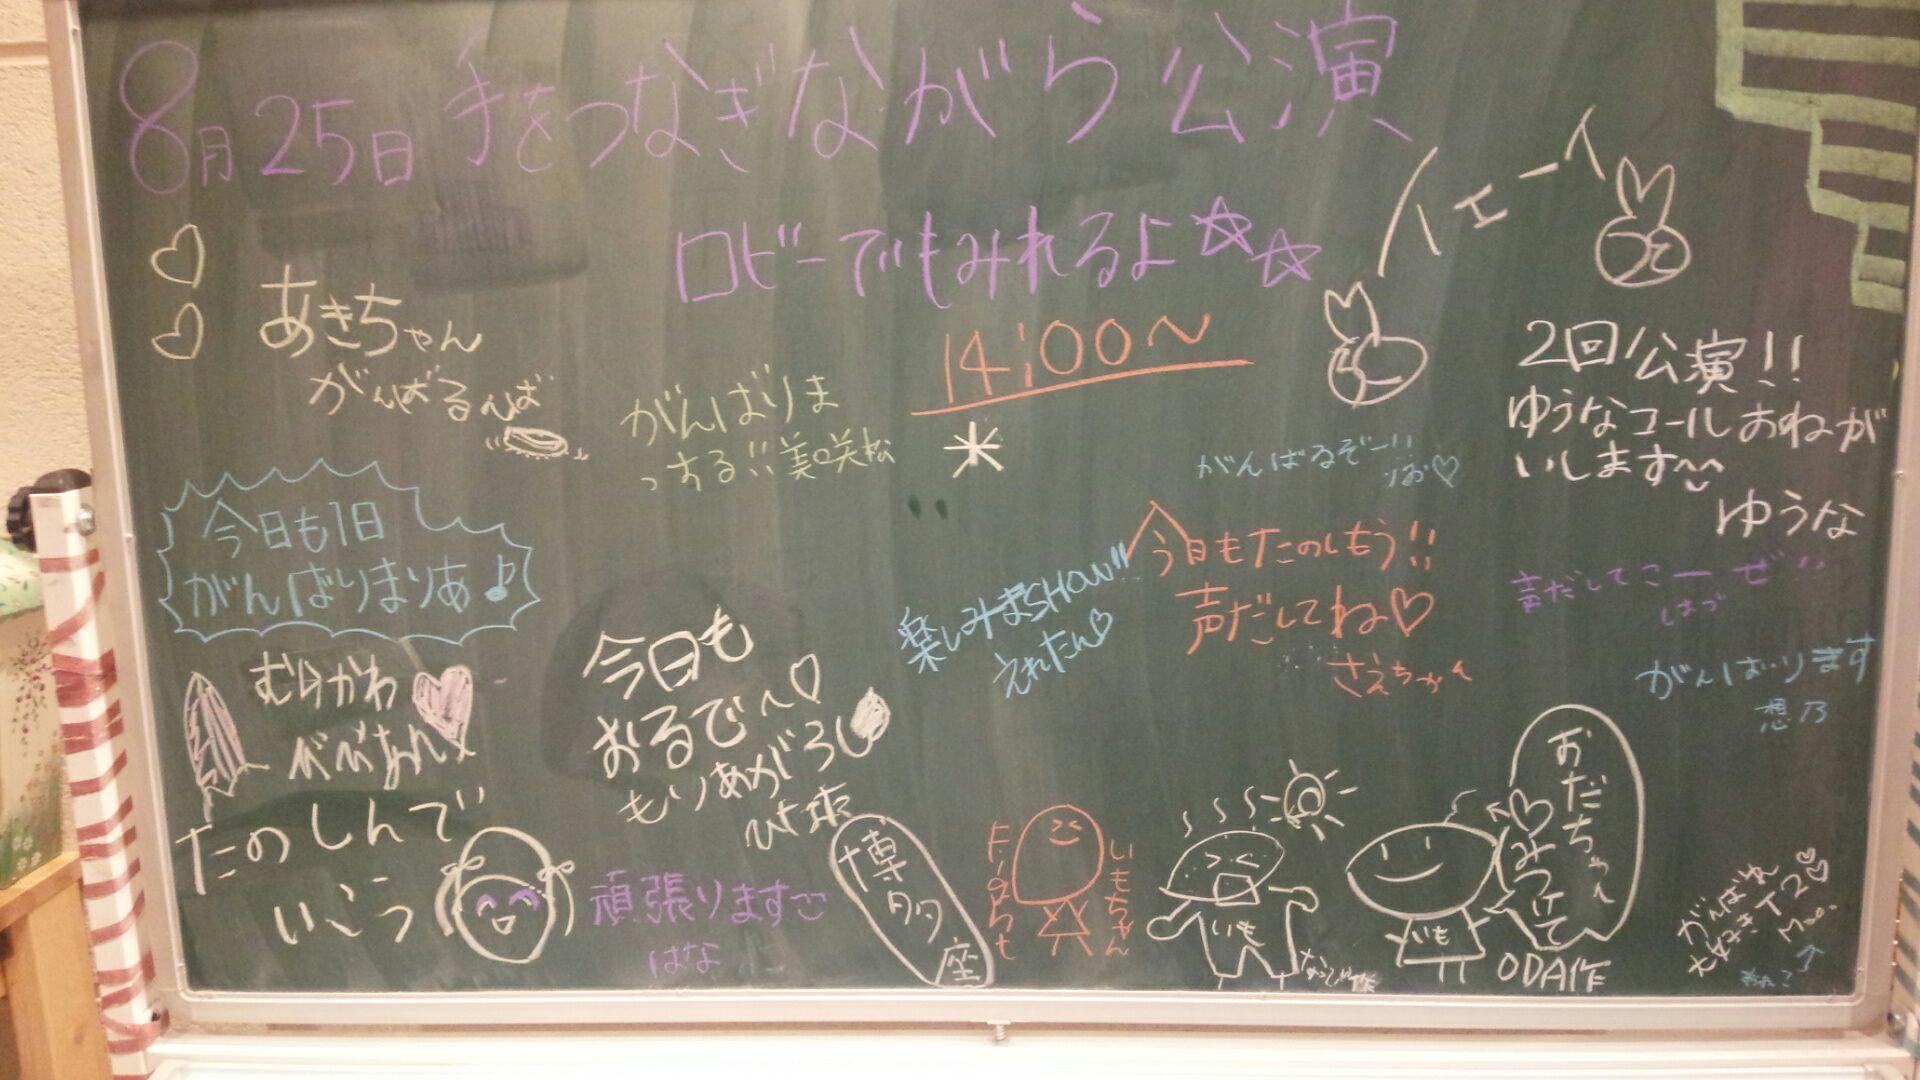 8月25日 手をつなぎながら公演
ロビーでもみれるよ☆☆
14:00〜
イエーイ
あきちゃん
がんばるんば
がんばりま
っする!!美咲松
今日も1日
がんばりまりあ♪
むらかわ
べべあん
たのしんで
いこう
今日も
おるで〜♡
もりあがろし
頑張りますこ
はな
博多座
楽しみまSHOW!!
えれたん♡
がんばるぞー!!
りお♡
今日もたのしもう!!
声だしてね♡
さえちゃん
2回公演!!
ゆうなコールおねが
いします^^
ゆうな
声だしてこーぜ!!
はづ
がんばります
想乃
いもちゃん
いも
なつぴ作
いも
おだちゃん
みつけて
ODA作
がんばれ
大好きT2♡